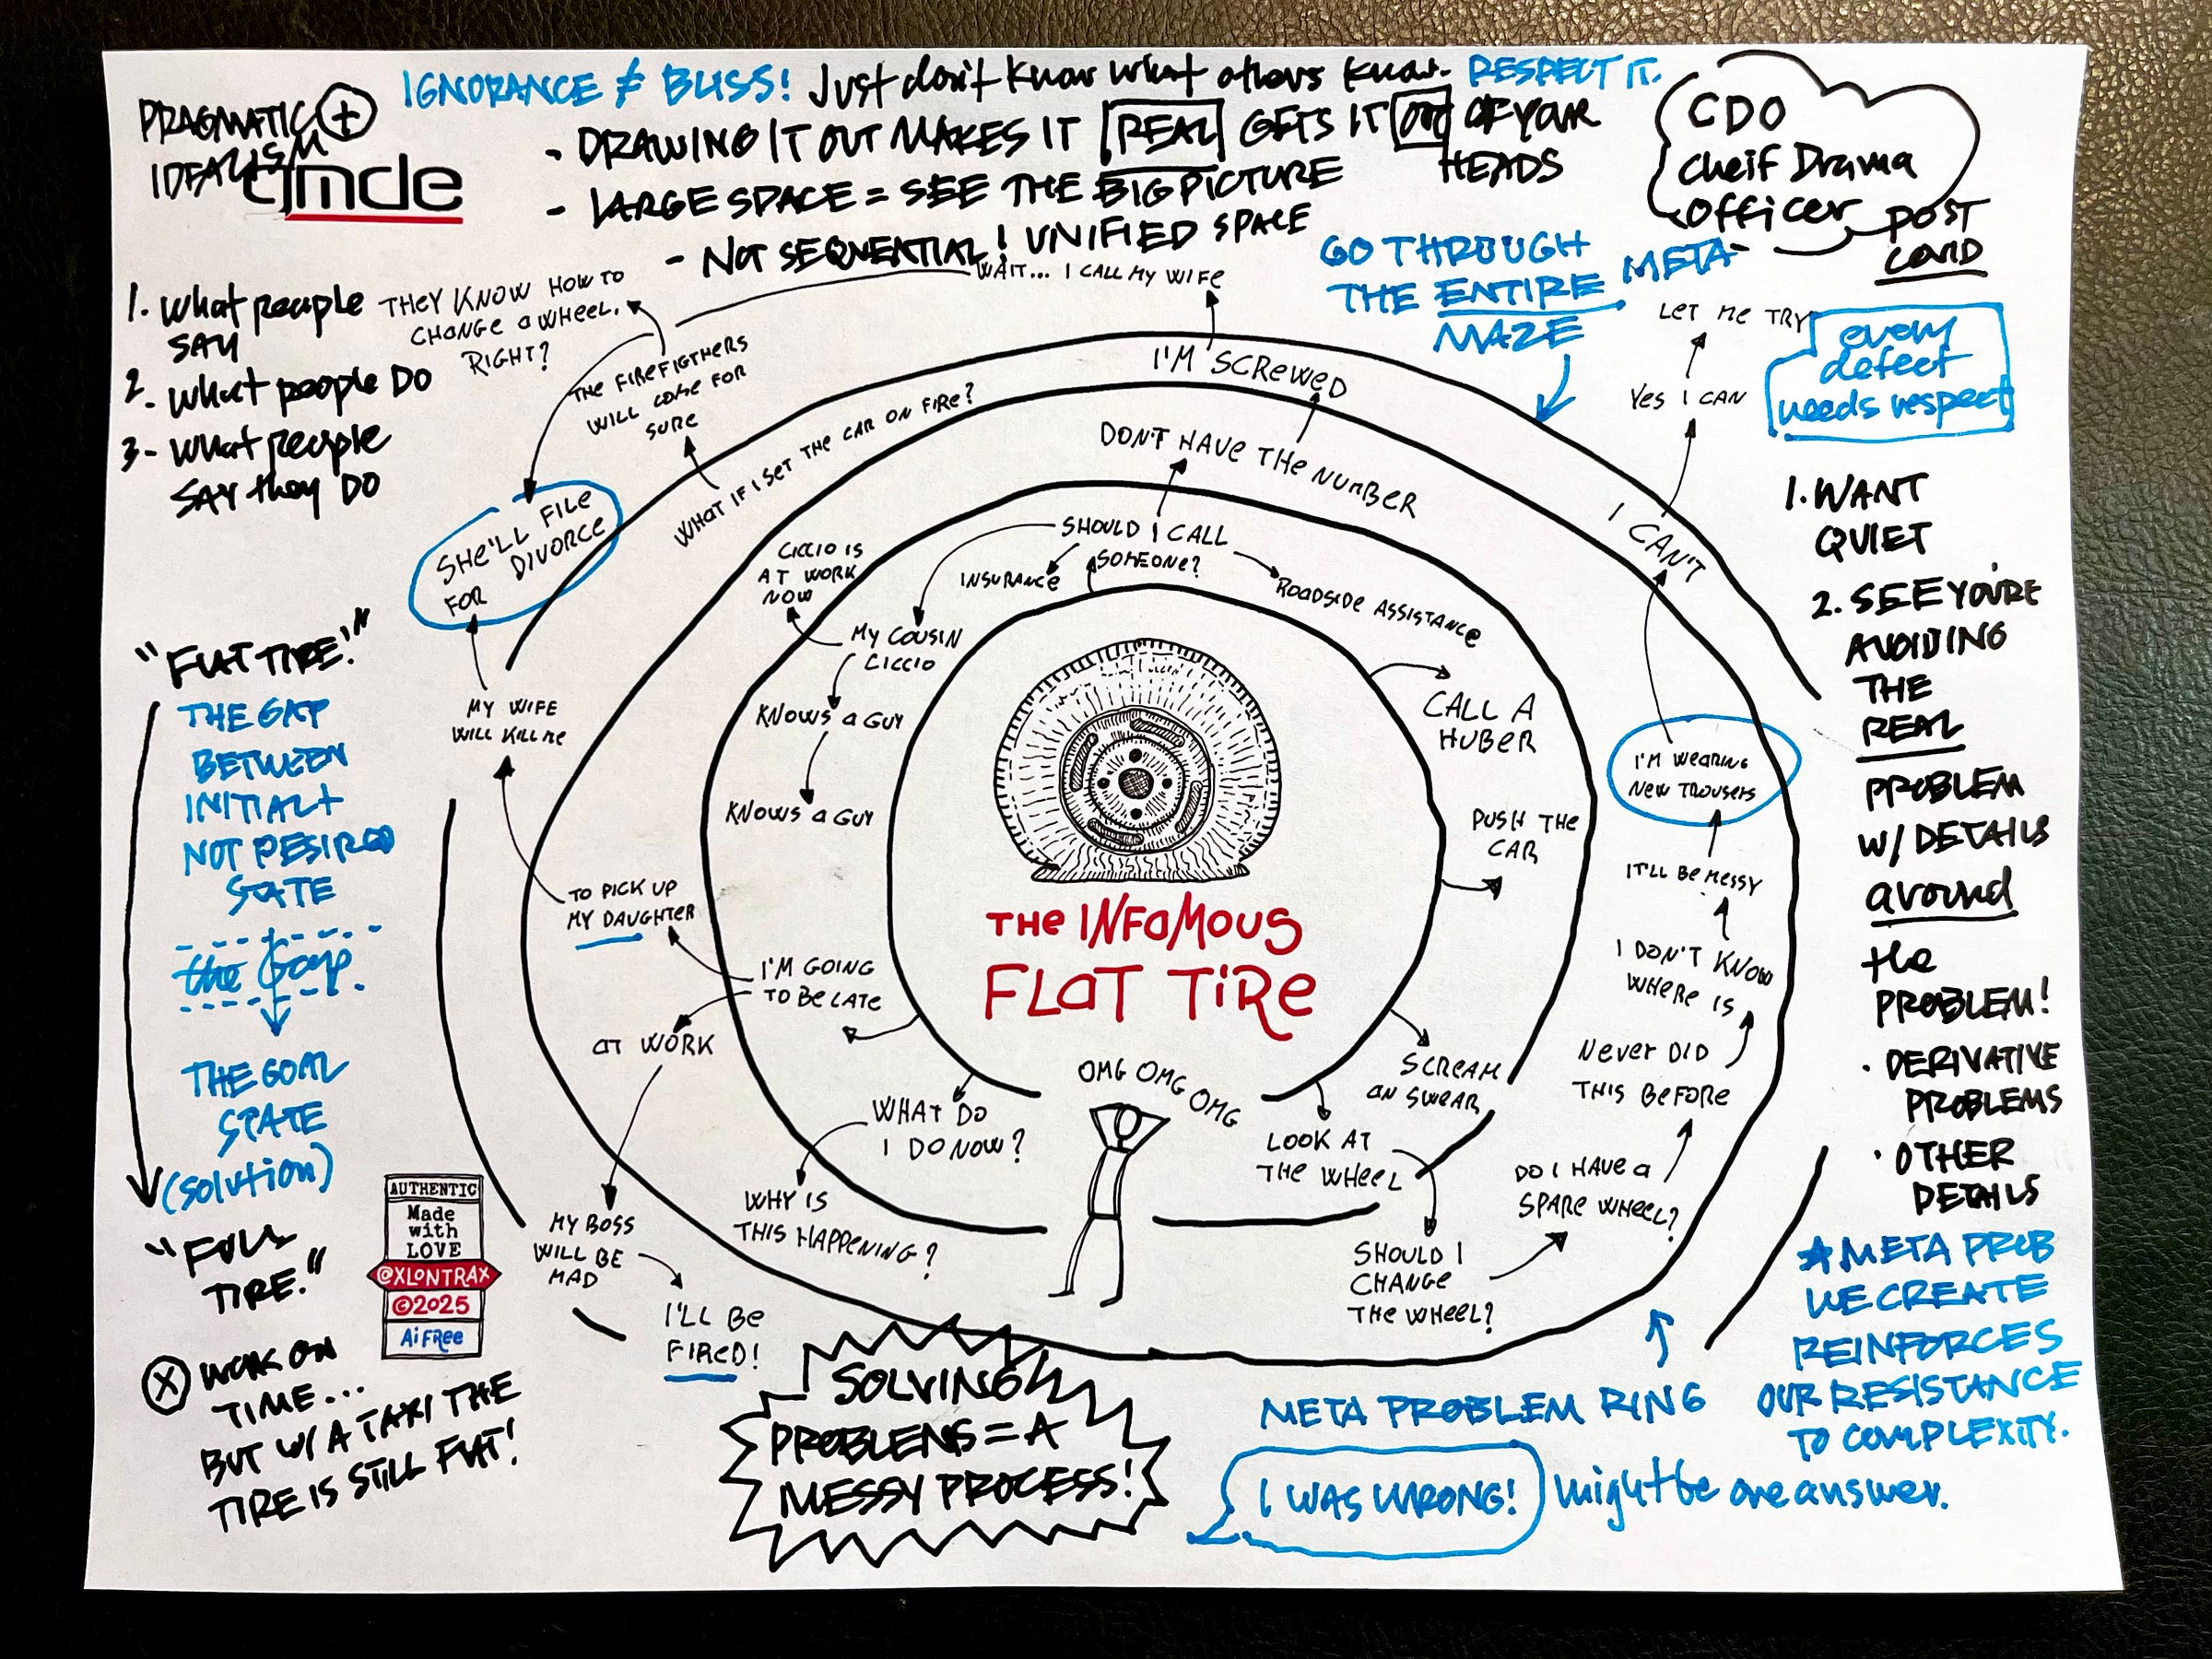 IGNORANCE ≠ BLISS! Just don't know what others know. RESPECT IT.
PRAGMATIC +
IDEALISM
- DRAWING IT OUT MAKES IT REAL GETS IT OUT OF YOUR
HEADS
- LARGE SPACE = SEE THE BIG PICTURE
- NOT SEQUENTIAL! UNIFIED SPACE
CDO
Cheif Drama
Officer
POST
COVID
GO THROUGH
THE ENTIRE META-
MAZE
every
defect
needs respect
1. What people
SAY
2. What people DO
3- What people
SAY they DO
THEY KNOW HOW TO
CHANGE a WHEEL,
RIGHT?
WAIT... I CALL MY WIFE
THE FIREFIGTHERS
WILL COME FOR
SURE
WHAT IF I SET THE CAR ON FIRE?
SHE'LL FILE
FOR DIVORCE
I'M SCREWED
DON'T HAVE THE NUMBER
SHOULD I CALL
SOMEONE?
INSURANCE
ROADSIDE ASSISTANCE
MY COUSIN
CICCIO
CICCIO IS
AT WORK
NOW
KNOWS a GUY
KNOWS a GUY
CALL A
HUBER
PUSH THE
CAR
SCREAM
an SWEAR
LOOK AT
THE WHEEL
SHOULD I
CHANGE
THE WHEEL?
DO I HAVE a
SPARE WHEEL?
NEVER DID
THIS BEFORE
I DON'T KNOW
WHERE IS
IT'LL BE MESSY
I'M WEARING
NEW TROUSERS
I CAN'T
YES I CAN
LET ME TRY
THE INFAMOUS
FLAT TIRE
OMG OMG OMG OMG
WHAT DO
I DO NOW?
WHY IS
THIS HAPPENING?
I'M GOING
TO BE LATE
TO PICK UP
MY DAUGHTER
MY WIFE
WILL KILL ME
aT WORK
MY BOSS
WILL BE
MAD
I'LL BE
FIRED!
"FLAT TIRE!"
THE GAP
BETWEEN
INITIAL +
NOT DESIRED
STATE
the Gap
THE GOAL
STATE
(solution)
"FULL
TIRE."
X WORK ON
TIME...
BUT W/ A TAXI THE
TIRE IS STILL FLAT!
AUTHENTIC
Made
with
LOVE
@XLONTRAX
©2025
Ai FRee
SOLVING
PROBLEMS = A
MESSY PROCESS!
META PROBLEM RING
I WAS WRONG! might be one answer.
1. WANT
QUIET
2. SEE YOU'RE
AVOIDING
THE
REAL
PROBLEM
W/ DETAILS
around
the
PROBLEM!
• DERIVATIVE
PROBLEMS
• OTHER
DETAILS
* META PROB
WE CREATE
REINFORCES
OUR RESISTANCE
TO COMPLEXITY.